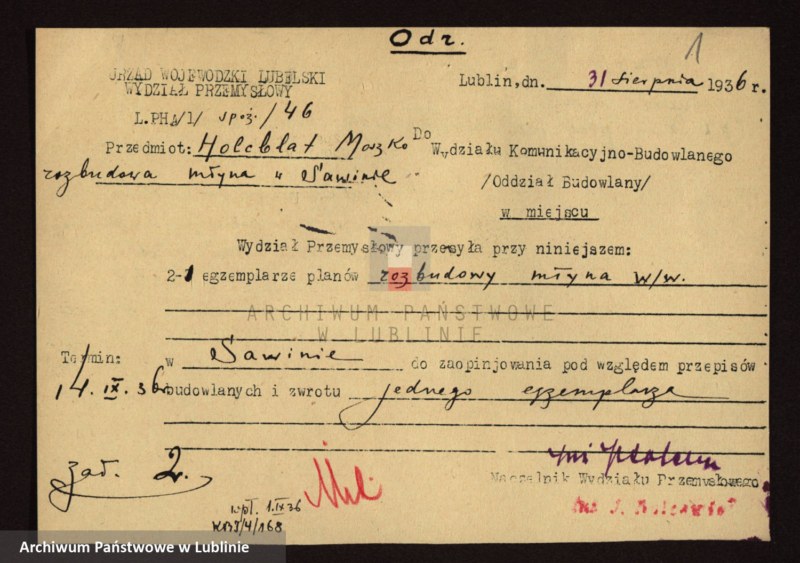 Odr.
1
URZĄD WOJEWÓDZKI LUBELSKI
WYDZIAŁ PRZEMYSŁOWY
Lublin, dn. 31 sierpnia 1936 r.
L.PHA/1/ spoż./46
Przedmiot: Holcblat Moszko
rozbudowa młyna w Sawinie
Do
Wydziału Komunikacyjno-Budowlanego
/Oddział Budowlany/
w miejscu
Wydział Przemysłowy przesyła przy niniejszem:
2-1 egzemplarze planów rozbudowy młyna w/w.
ARCHIWUM PAŃSTWOWE
W LUBLINIE
Termin:
14.IX.36
w Sawinie do zaopinjowania pod względem przepisów
budowlanych i zwrotu jednego egzemplarza
zał. 2.
wpł. 1.IX 36
KBI/4/168
Naczelnik Wydziału Przemysłowego
Archiwum Państwowe w Lublinie